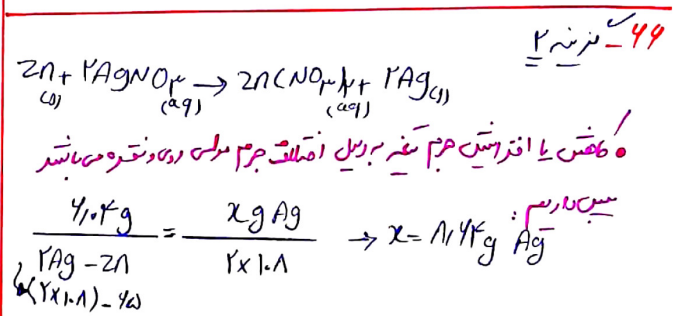 ۶۶ـ گزینه ۲
Zn(s) + ۲AgNO۳(aq) → Zn(NO۳)۲(aq) + ۲Ag(s)
• کاهش یا افزایش جرم تیغه به دلیل اختلاف جرم مولی روی و نقره می‌باشد
پس داریم:
۶٫۰۴g / ۲Ag - Zn = x g Ag / ۲×۱۰۸ → x = ۸٫۶۴g Ag
(۲×۱۰۸) - ۶۵